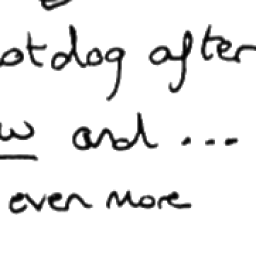 otdog after
w and ...
even more